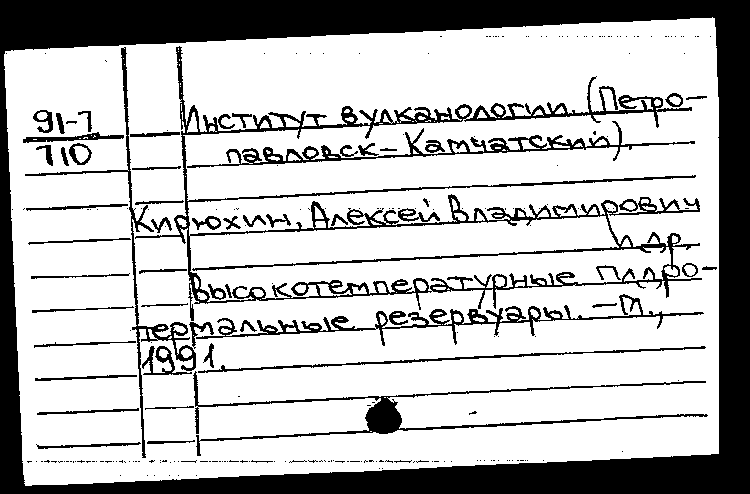 91-7
710
Институт вулканологии. (Петро-
павловск-Камчатский).
Кирюхин, Алексей Владимирович
и др.
Высокотемпературные гидро-
термальные резервуары. — М.,
1991.